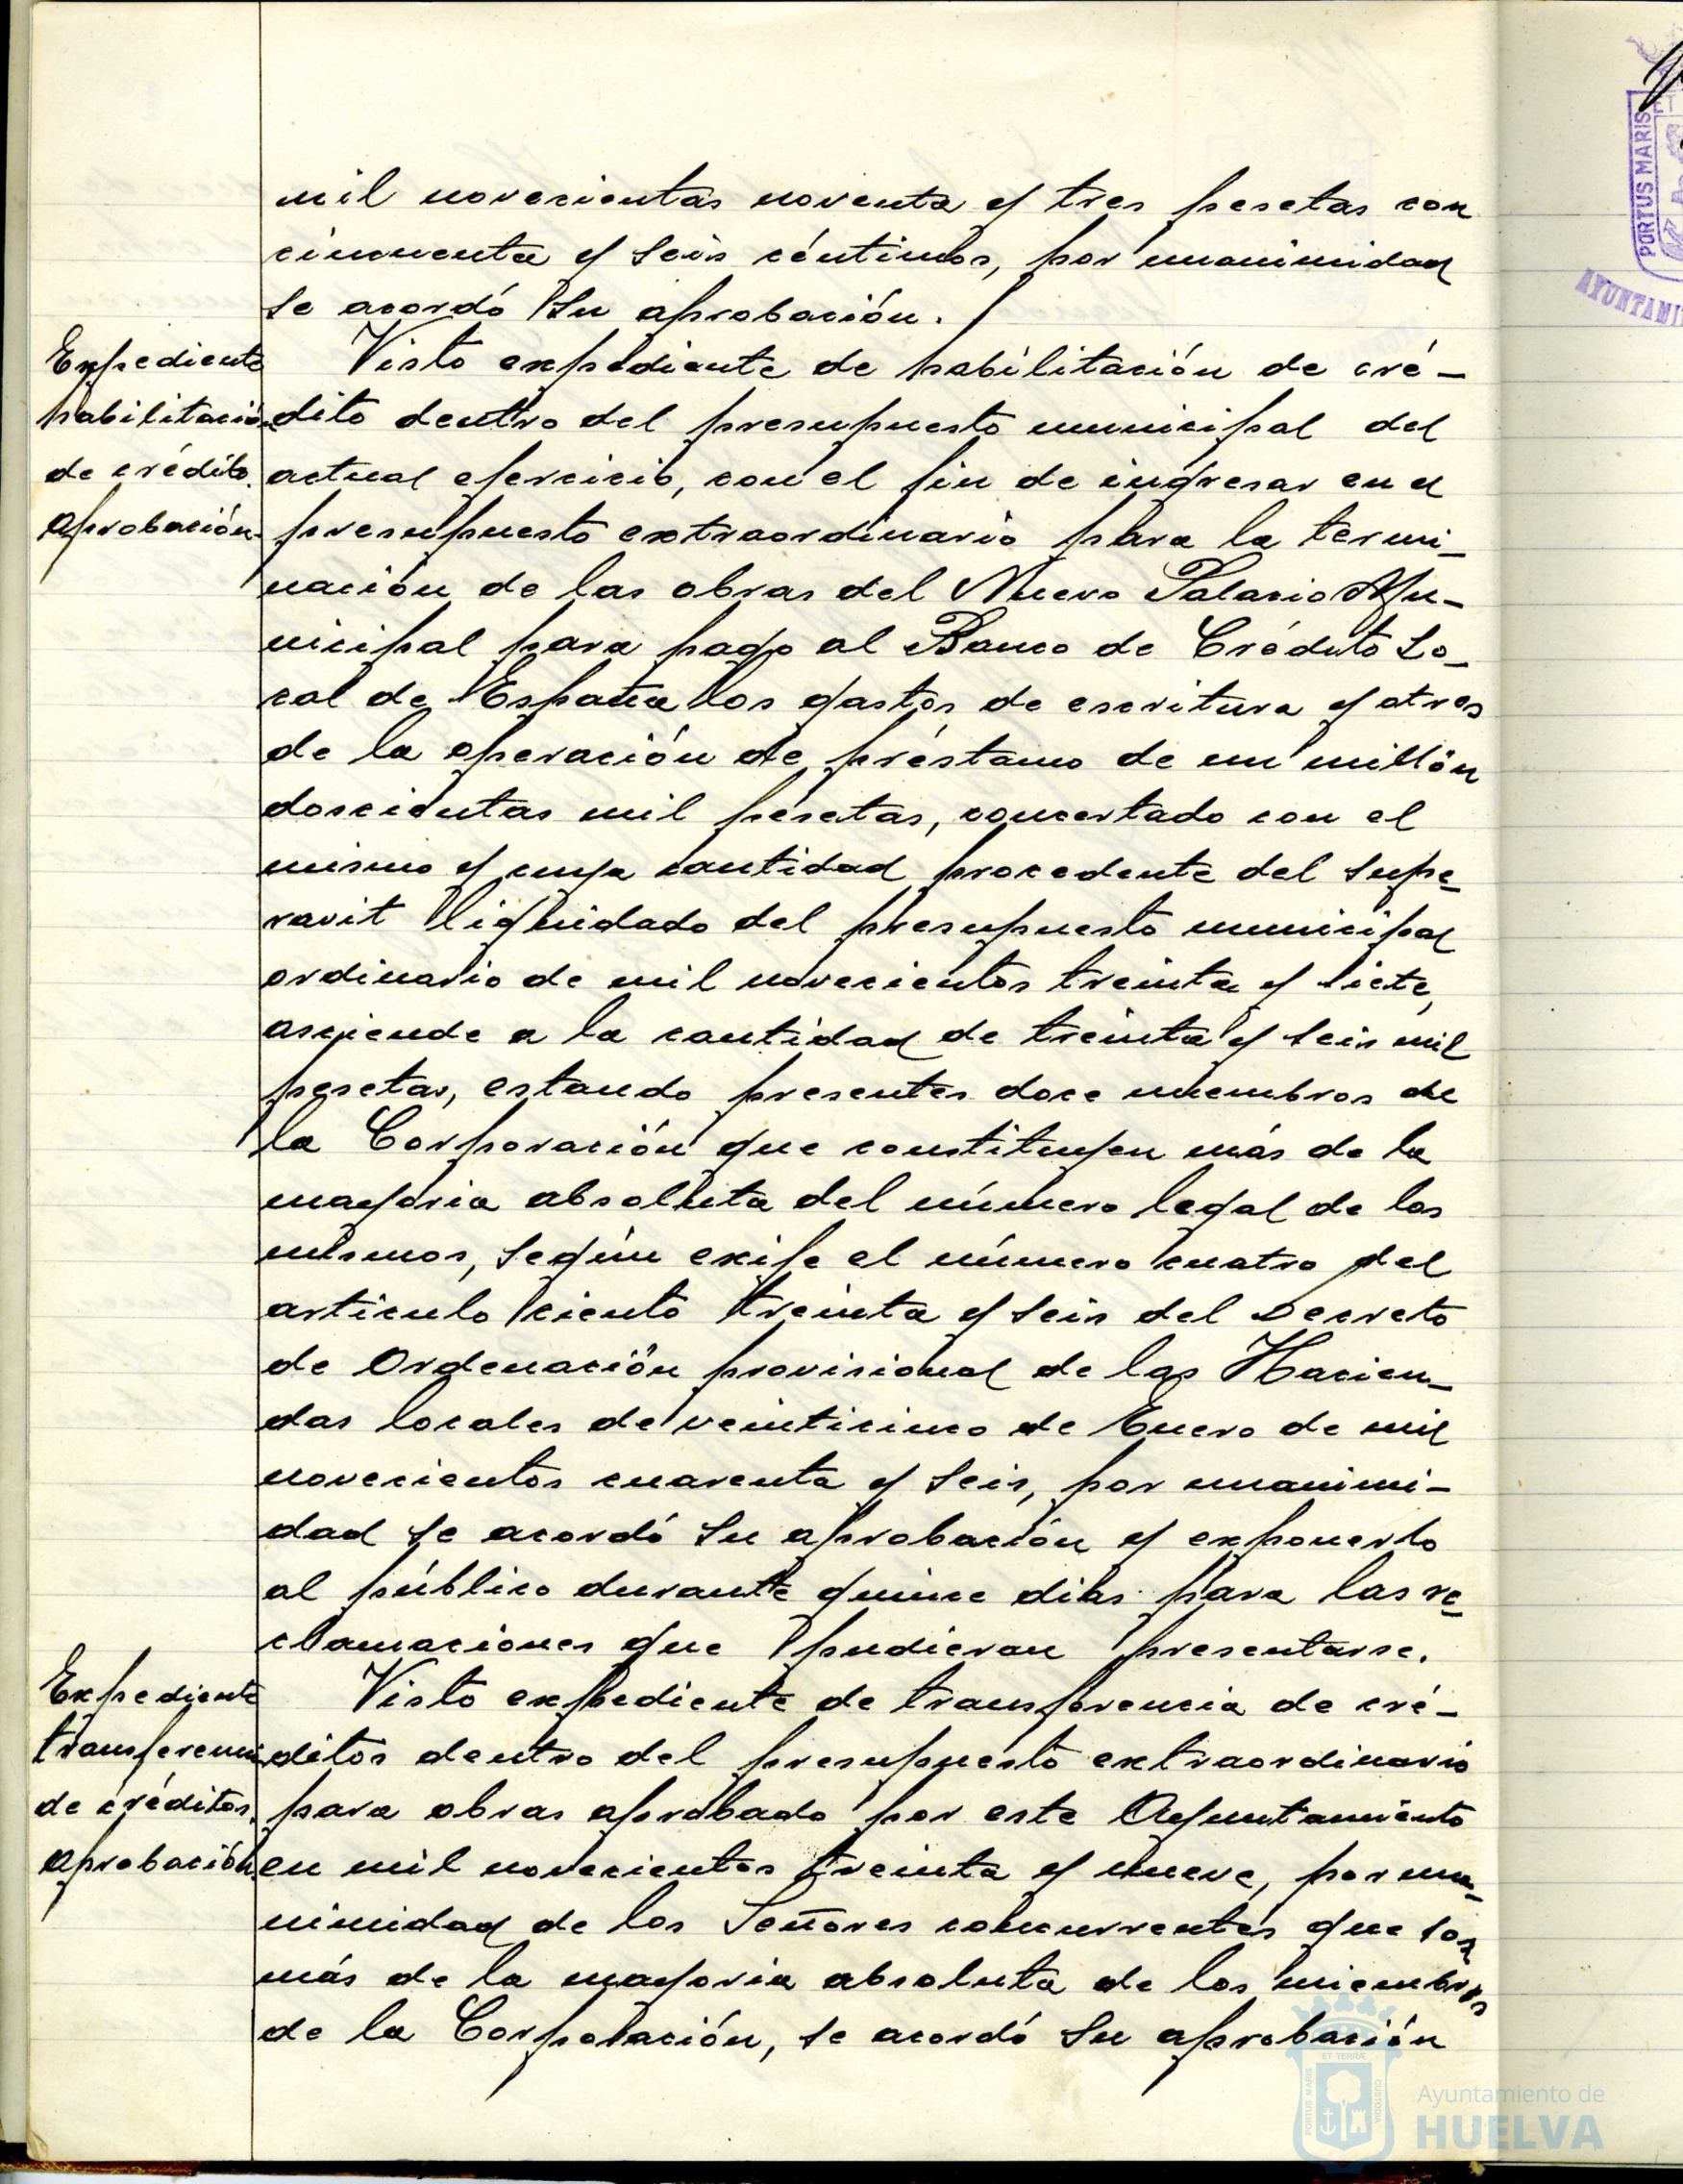 mil novecientas noventa y tres pesetas con
cincuenta y seis céntimos, por unanimidad
se acordó su aprobación.
Expediente
habilitación
de crédito.
Aprobación.
Visto expediente de habilitación de cré-
dito dentro del presupuesto municipal del
actual ejercicio, con el fin de ingresar en el
presupuesto extraordinario para la termi-
nación de las obras del Nuevo Palacio Mu-
nicipal para pago al Banco de Crédito Lo-
cal de España los gastos de escritura y otros
de la operación de préstamo de un millón
doscientas mil pesetas, concertado con el
mismo y cuya cantidad procedente del supe-
ravit liquidado del presupuesto municipal
ordinario de mil novecientos treinta y siete,
asciende a la cantidad de treinta y seis mil
pesetas, estando presentes doce miembros de
la Corporación que constituyen más de la
mayoria absoluta del número legal de los
mismos, según exije el número cuatro del
articulo ciento treinta y seis del Decreto
de Ordenación provisional de las Hacien-
das locales de veinticinco de Enero de mil
novecientos cuarenta y seis, por unanimi-
dad se acordó su aprobación y exponerlo
al público durante quince dias para las re-
clamaciones que pudieran presentarse.
Expediente
transferencia
de créditos.
Aprobación.
Visto expediente de transferencia de cré-
ditos dentro del presupuesto extraordinario
para obras aprobado por este Ayuntamiento
en mil novecientos treinta y nueve, por una-
nimidad de los Señores concurrentes que son
más de la mayoria absoluta de los miembros
de la Corporación, se acordó su aprobación
PORTUS MARIS ET
Ayuntamiento de
HUELVA
PORTUS MARIS
ET TERRÆ
CUSTODIA